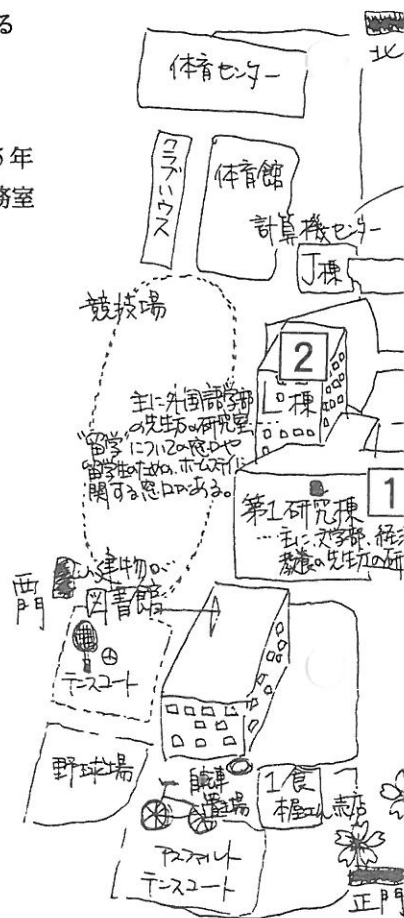 る
年
務室
北
体育センター
クラブハウス
体育館
計算機センター
J棟
競技場
2
L棟
主に外国語学部
の先生方の研究室
"留学"についての窓口や
留学生のための、ホームステイに
関する窓口がある。
1
第1研究棟
…主に文学部、経済
教養の先生方の研
西門
この建物が
図書館
テニスコート
野球場
自転車
置場
1食
本屋さん売店
アスファルト
テニスコート
正門